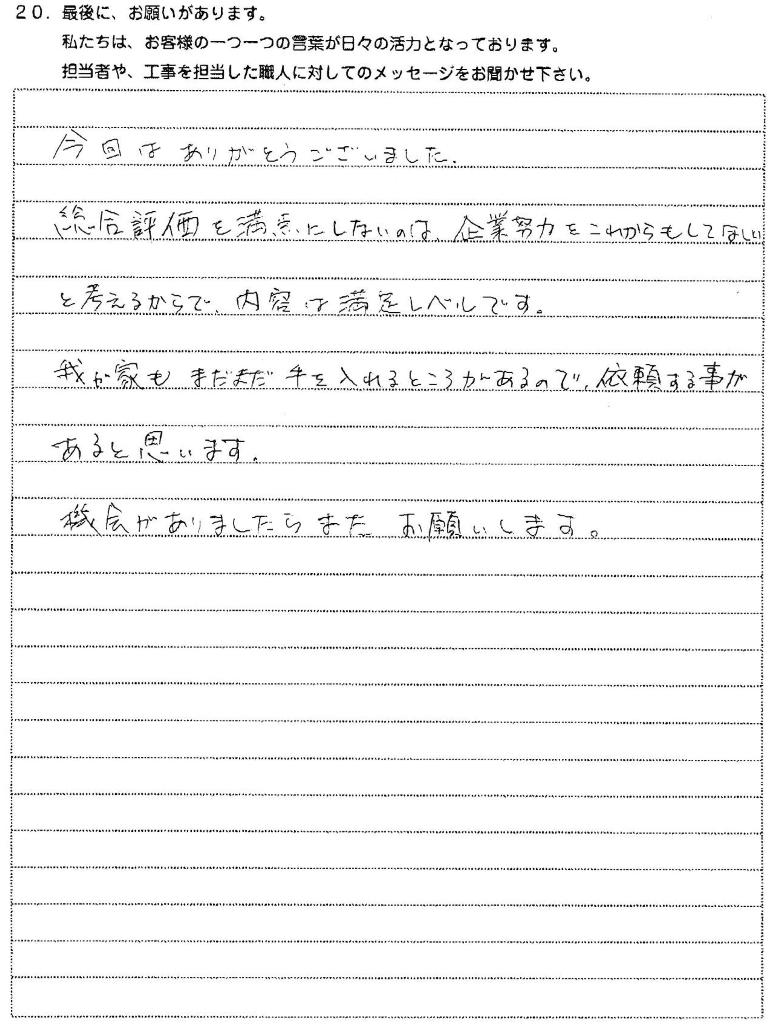 20. 最後に、お願いがあります。
私たちは、お客様の一つ一つの言葉が日々の活力となっております。
担当者や、工事を担当した職人に対してのメッセージをお聞かせ下さい。
今回はありがとうございました.
総合評価を満点にしないのは、企業努力をこれからもしてほしい
と考えるからで、内容は満足レベルです。
我が家もまだまだ手を入れるところがあるので、依頼する事が
あると思います。
機会がありましたらまたお願いします。